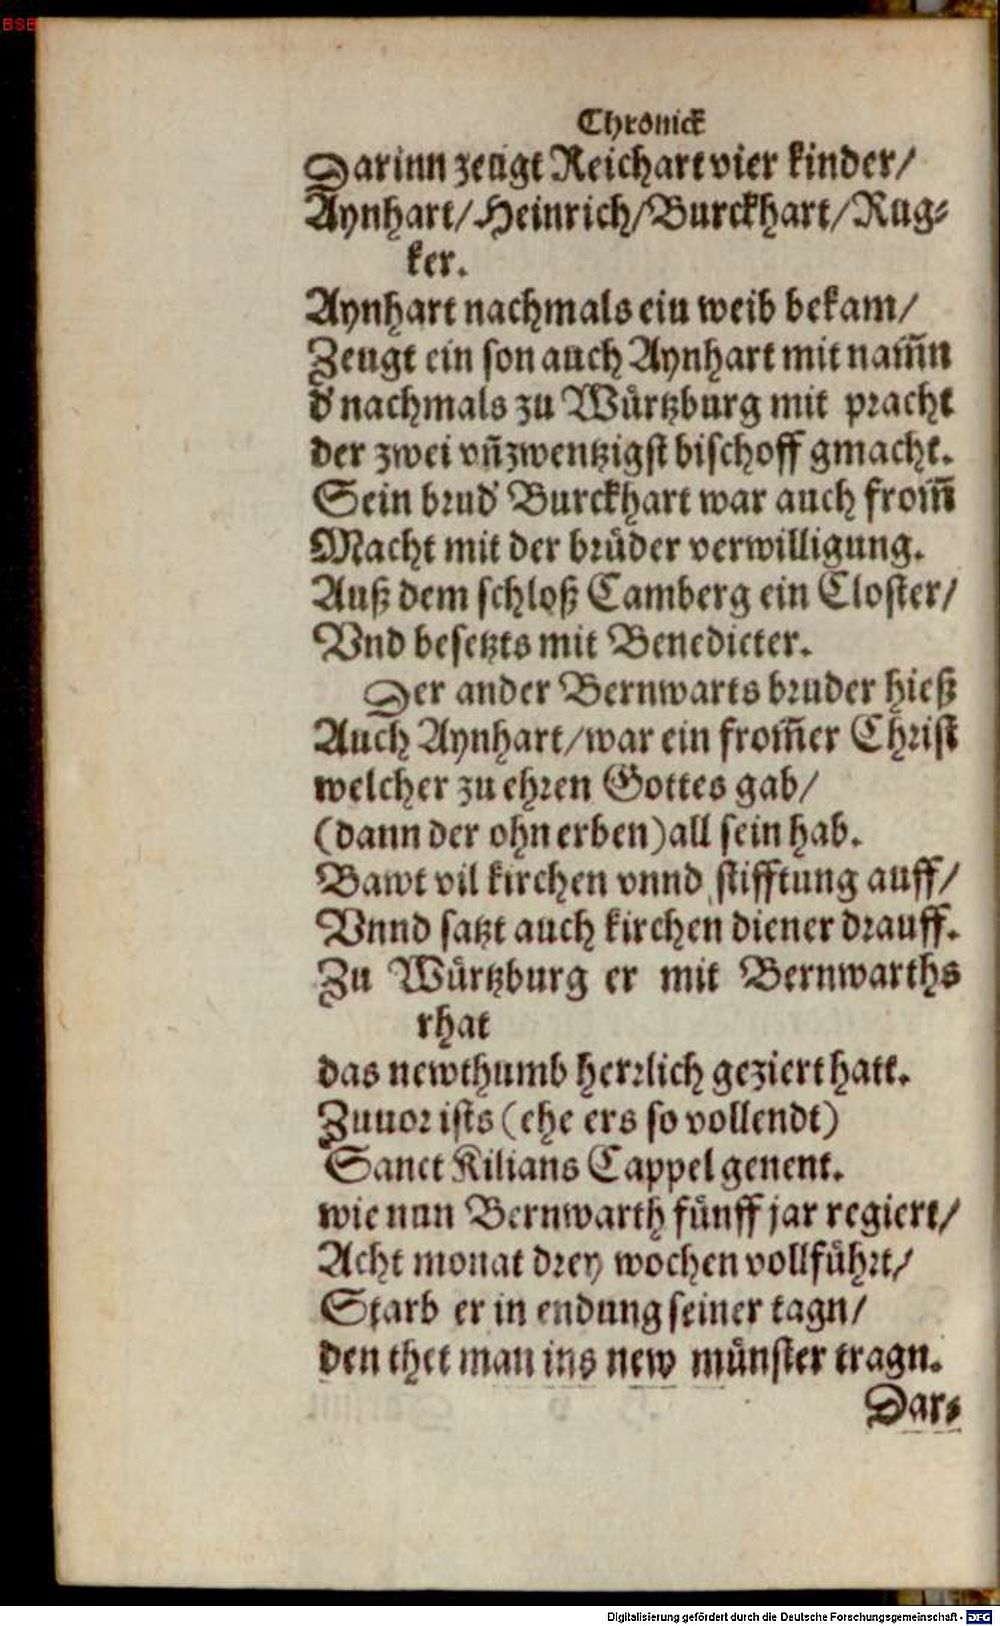 BSB
Chronick
Darinn zeugt Reichart vier kinder/
Aynhart/Heinrich/Burckhart/Rug⸗
ker.
Aynhart nachmals ein weib bekam/
Zeugt ein son auch Aynhart mit nam̃n
d' nachmals zu Würtzburg mit pracht
der zwei vñzwentzigst bischoff gmacht.
Sein brud' Burckhart war auch from̃
Macht mit der brüder verwilligung.
Auß dem schloß Camberg ein Closter/
Vnd besetzts mit Benedicter.
Der ander Bernwarts bruder hieß
Auch Aynhart/war ein from̃er Christ
welcher zu ehren Gottes gab/
(dann der ohn erben)all sein hab.
Bawt vil kirchen vnnd stifftung auff/
Vnnd satzt auch kirchen diener drauff.
Zu Würtzburg er mit Bernwarths
rhat
das newthumb herrlich geziert hatt.
Zuuor ists (ehe ers so vollendt)
Sanct Kilians Cappel genent.
wie nun Bernwarth fünff jar regiert/
Acht monat drey wochen vollführt/
Starb er in endung seiner tagn/
den thet man ins new münster tragn.
Dar⸗
Digitalisierung gefördert durch die Deutsche Forschungsgemeinschaft - DFG